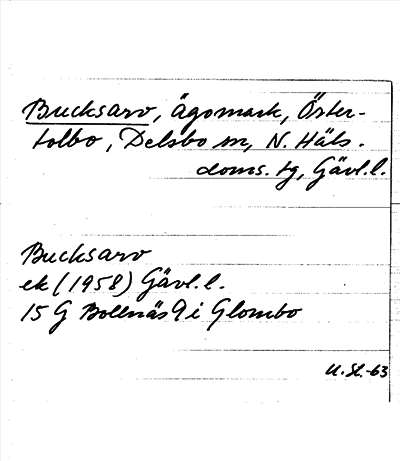 Bucksarv, ägomark, Öster-
tolbo, Delsbo sn, N. Häls.
doms. tg, Gävl.l.
Bucksarv
ek (1958) Gävl.l.
15 G Bollnäs 9 i Glombo
U.St.-63